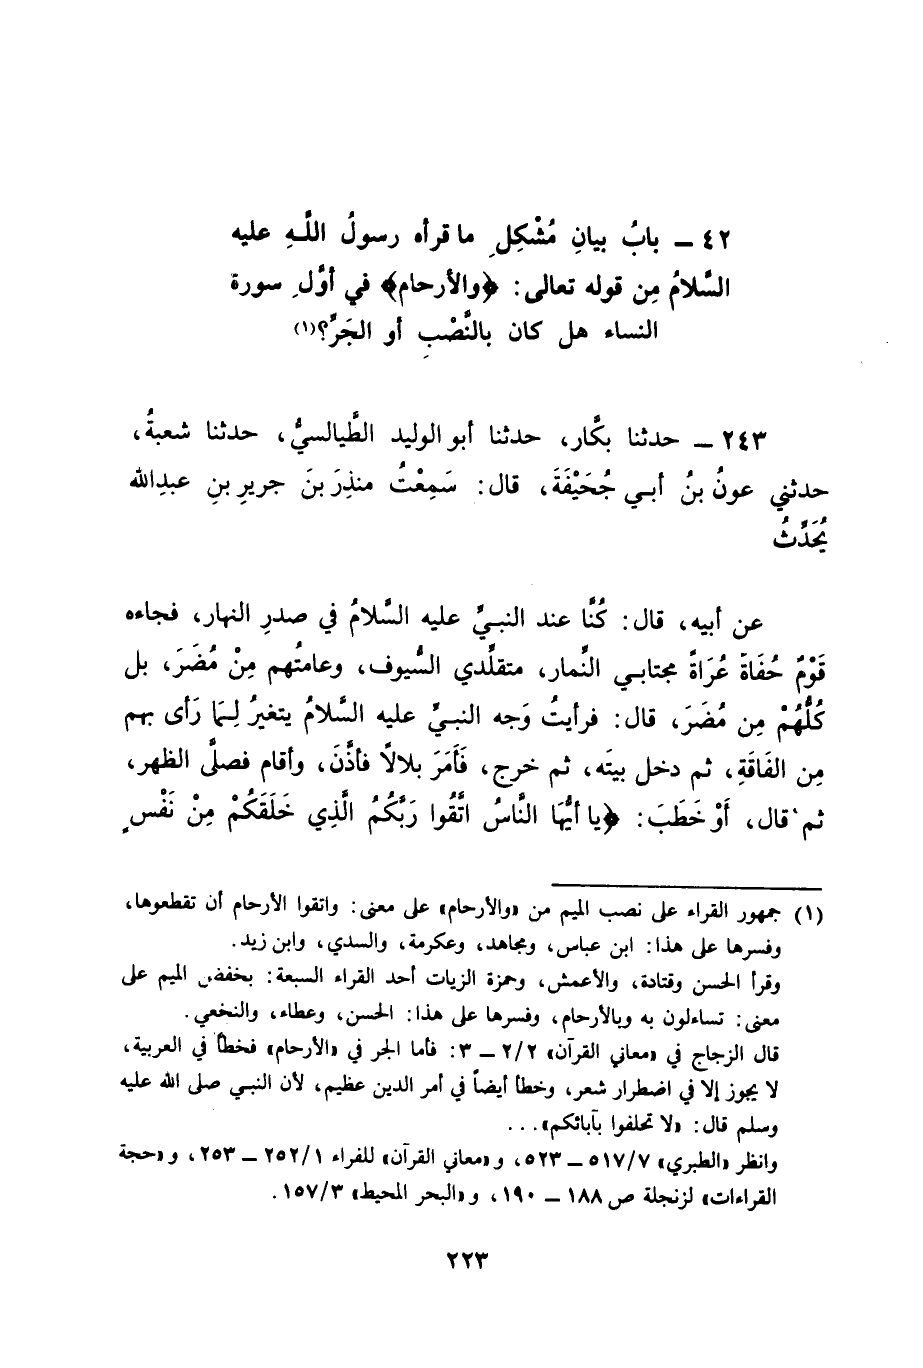 ٤٢ ــ بابُ بيانِ مُشْكِلِ ما قرأه رسولُ اللَّهِ عليه
السَّلامُ مِن قوله تعالى: ﴿والأرحام﴾ في أوَّلِ سورة
النساء هل كان بالنَّصْبِ أو الجَرِّ؟(١)
٢٤٣ ــ حدثنا بكَّار، حدثنا أبو الوليد الطَّيالسيُّ، حدثنا شعبةُ،
حدثني عونُ بنُ أبـي جُحَيْفَةَ، قال: سَمِعْتُ منذِرَ بنَ جريرِ بنِ عبدِالله
يُحَدِّثُ
عن أبيه، قال: كُنَّا عند النبـيِّ عليه السَّلامُ في صدرِ النهار، فجاءه
قَوْمٌ حُفَاةً عُرَاةً مجتابـي النِّمار، متقلِّدي السُّيوف، وعامتُهم مِنْ مُضَرَ، بل
كُلُّهُمْ مِن مُضَرَ، قال: فرأيتُ وَجه النبـيِّ عليه السَّلامُ يتغيرُ لِمَا رَأى بهم
مِن الفَاقَةِ، ثم دخل بيتَه، ثم خرج، فَأَمَرَ بلالاً فأذَّنَ، وأقام فصلَّى الظهر،
ثم قال، أَوْ خَطَبَ: ﴿يا أيُّها النَّاسُ اتَّقُوا رَبَّكُمُ الَّذِي خَلَقَكُمْ مِنْ نَفْسٍ
(١) جمهور القراء على نصب الميم من «والأرحام» على معنى: واتقوا الأرحام أن تقطعوها،
وفسرها على هذا: ابن عباس، ومجاهد، وعكرمة، والسدي، وابن زيد.
وقرأ الحسن وقتادة، والأعمش، وحمزة الزيات أحد القراء السبعة: بخفض الميم على
معنى: تساءلون به وبالأرحام، وفسرها على هذا: الحسن، وعطاء، والنخعي.
قال الزجاج في «معاني القرآن» ٢/٢ ــ ٣: فأما الجر في «الأرحام» فخطأ في العربية،
لا يجوز إلا في اضطرار شعر، وخطأ أيضاً في أمر الدين عظيم، لأن النبـي صلى الله عليه
وسلم قال: «لا تحلفوا بآبائكم»...
وانظر «الطبري» ٥١٧/٧ ــ ٥٢٣، و«معاني القرآن» للفراء ٢٥٢/١ ــ ٢٥٣، و«حجة
القراءات» لزنجلة ص ١٨٨ ــ ١٩٠، و«البحر المحيط» ١٥٧/٣.
٢٢٣